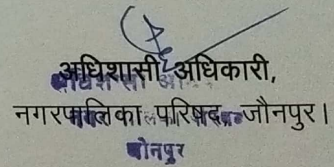 अधिशासी अधिकारी,
नगरपालिका परिषद, जौनपुर।
जौनपुर